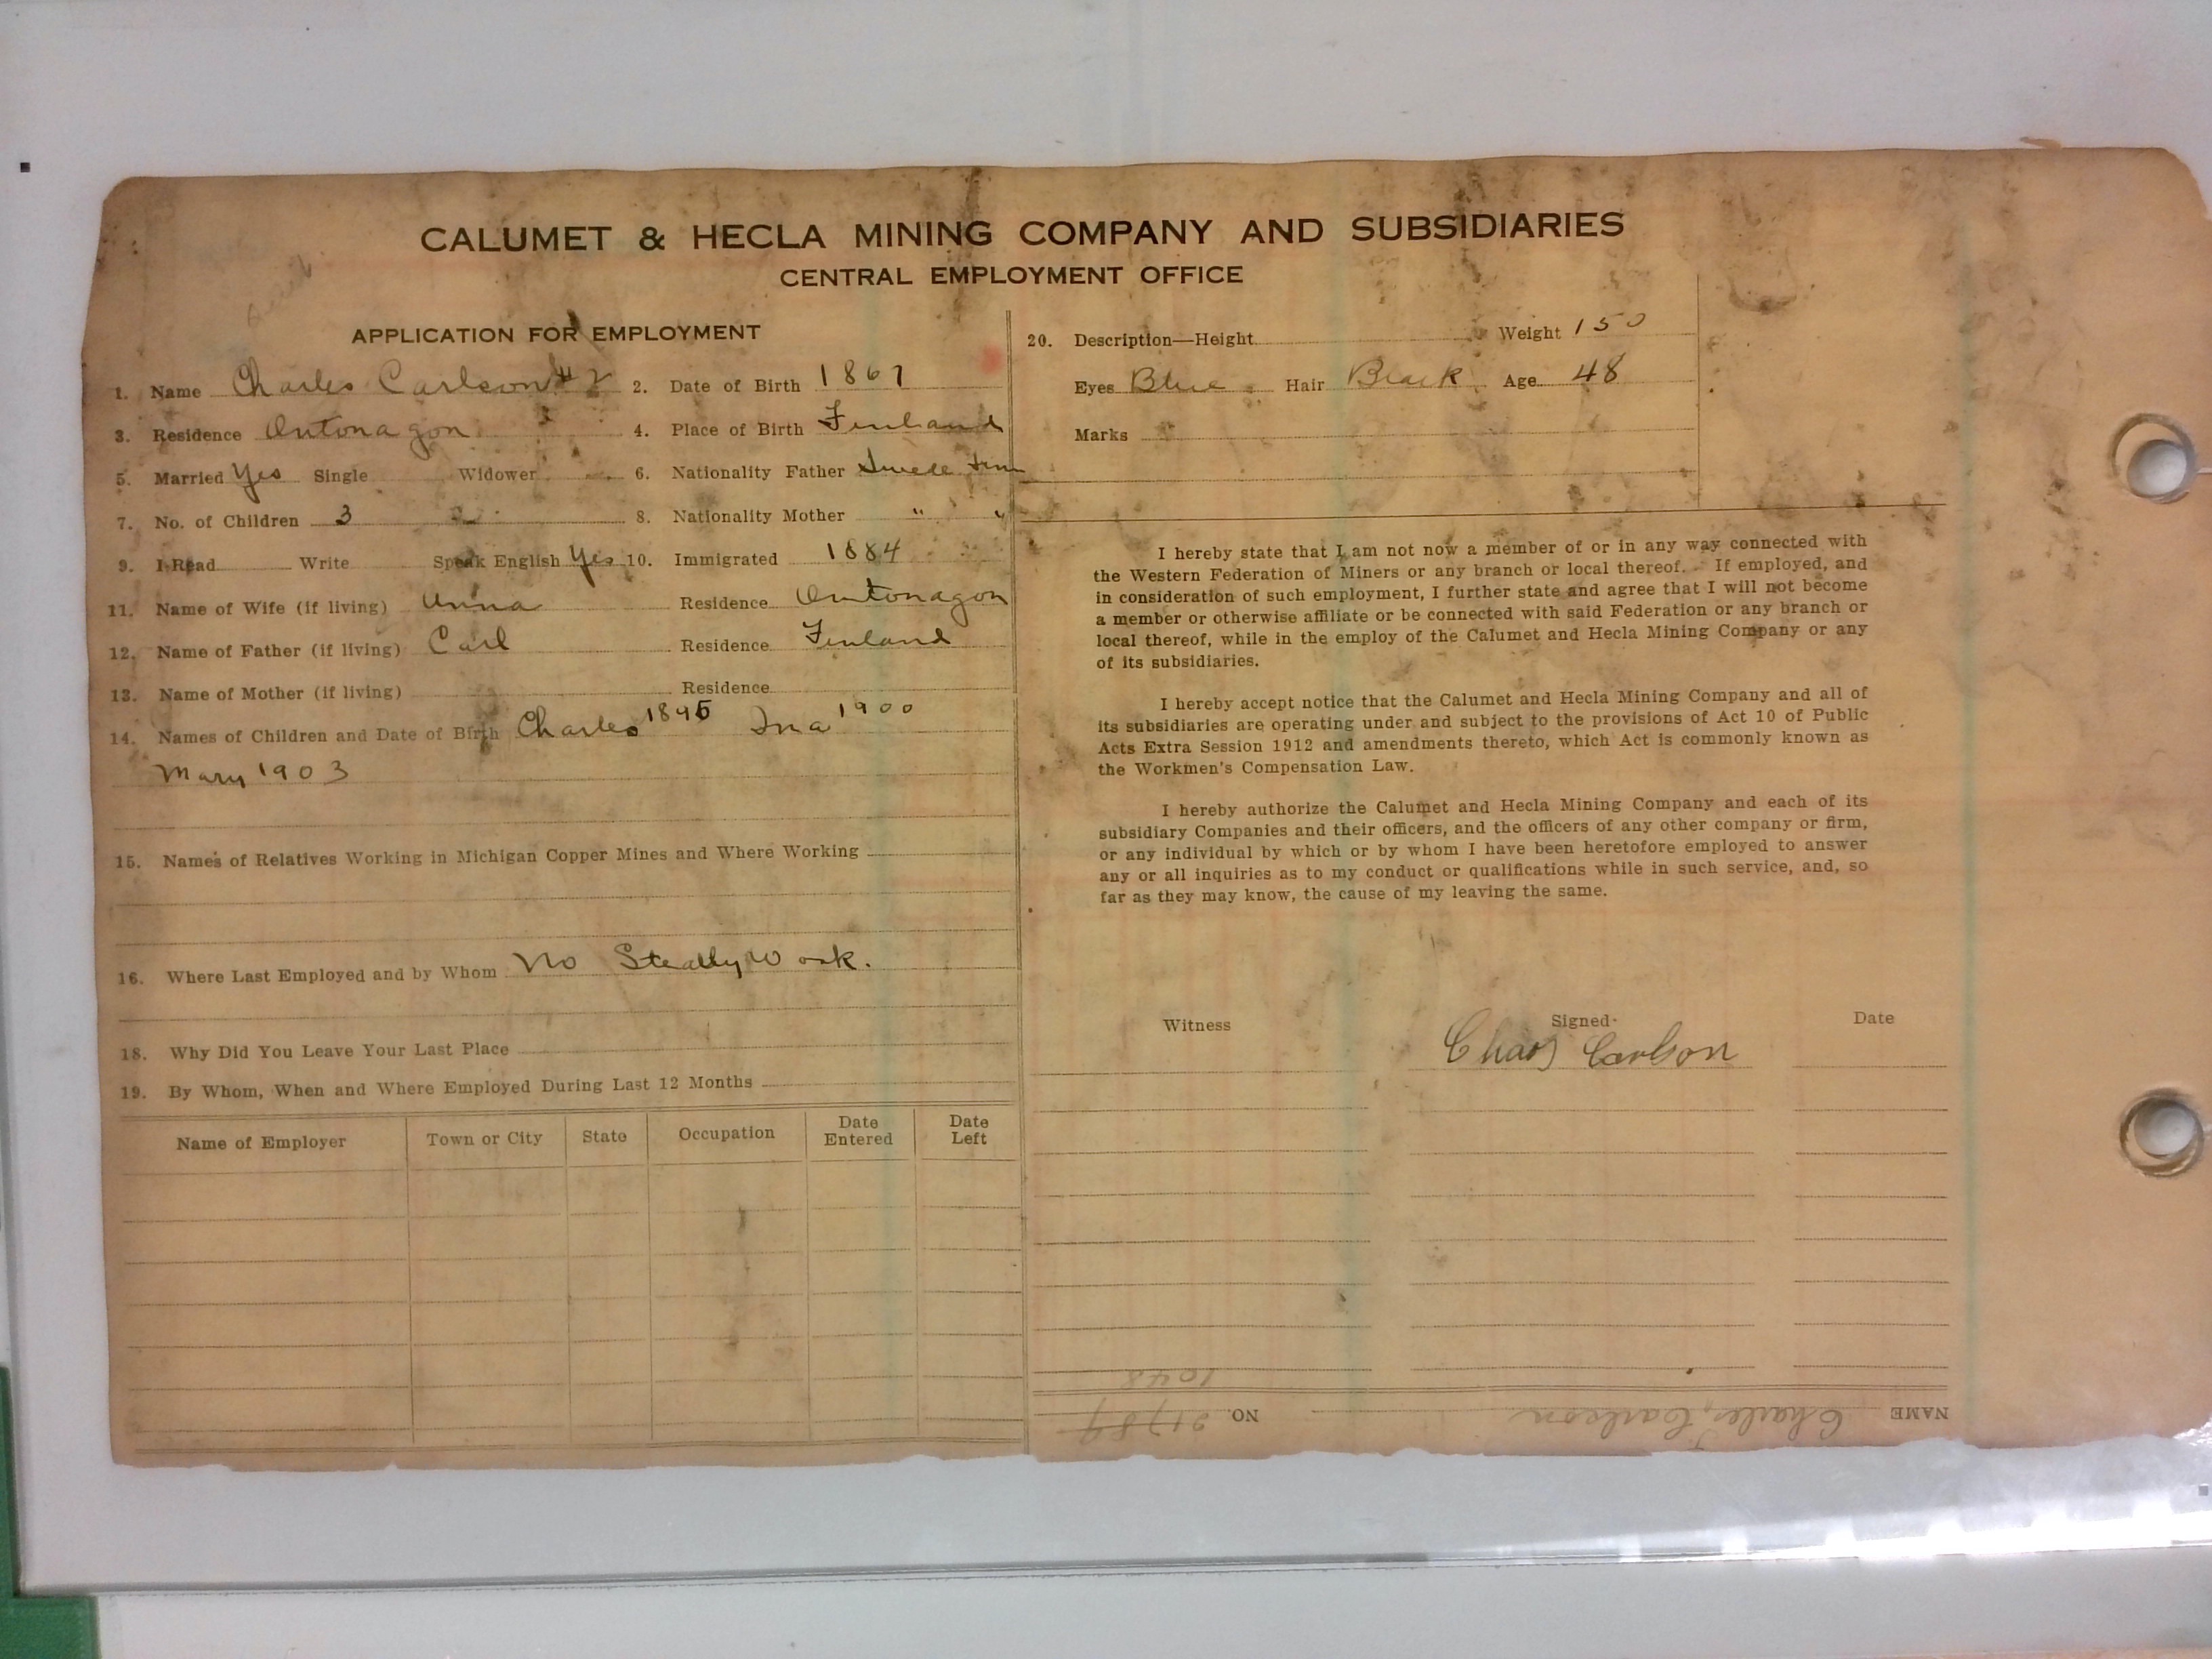 CALUMET & HECLA MINING COMPANY AND SUBSIDIARIES
CENTRAL EMPLOYMENT OFFICE
APPLICATION FOR EMPLOYMENT
1. Name Charles Carlson #2 2. Date of Birth 1867
3. Residence Ontonagon 4. Place of Birth Finland
5. Married Yes Single Widower 6. Nationality Father Swede Finn
7. No. of Children 3 8. Nationality Mother " "
9. I Read Write Speak English Yes 10. Immigrated 1884
11. Name of Wife (if living) Anna Residence Ontonagon
12. Name of Father (if living) Carl Residence Finland
13. Name of Mother (if living) Residence
14. Names of Children and Date of Birth Charles Ina 1900
Mary 1903
15. Names of Relatives Working in Michigan Copper Mines and Where Working
16. Where Last Employed and by Whom No Steady Work.
18. Why Did You Leave Your Last Place
19. By Whom, When and Where Employed During Last 12 Months
Name of Employer Town or City State Occupation Date Entered Date Left
20. Description—Height Weight 150
Eyes Blue Hair Black Age 48
Marks
I hereby state that I am not now a member of or in any way connected with
the Western Federation of Miners or any branch or local thereof. If employed, and
in consideration of such employment, I further state and agree that I will not become
a member or otherwise affiliate or be connected with said Federation or any branch or
local thereof, while in the employ of the Calumet and Hecla Mining Company or any
of its subsidiaries.
I hereby accept notice that the Calumet and Hecla Mining Company and all of
its subsidiaries are operating under and subject to the provisions of Act 10 of Public
Acts Extra Session 1912 and amendments thereto, which Act is commonly known as
the Workmen's Compensation Law.
I hereby authorize the Calumet and Hecla Mining Company and each of its
subsidiary Companies and their officers, and the officers of any other company or firm,
or any individual by which or by whom I have been heretofore employed to answer
any or all inquiries as to my conduct or qualifications while in such service, and, so
far as they may know, the cause of my leaving the same.
Witness Signed Date
Chas Carlson
NAME Charles Carlson NO. 21784
1048